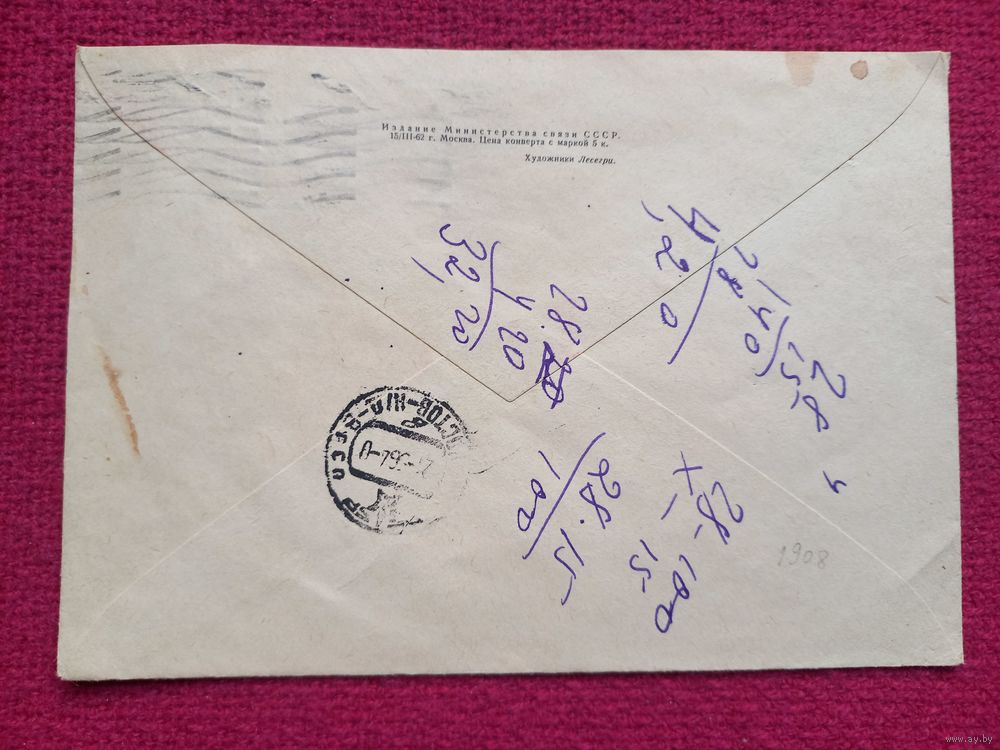 Издание Министерства связи СССР.
15/III-62 г. Москва. Цена конверта с маркой 5 к.
Художники Лесегри.
4,20
28
140
32,20
4 20
28.
28 15
28.15
100
28-100
15
1908
www.ay.by